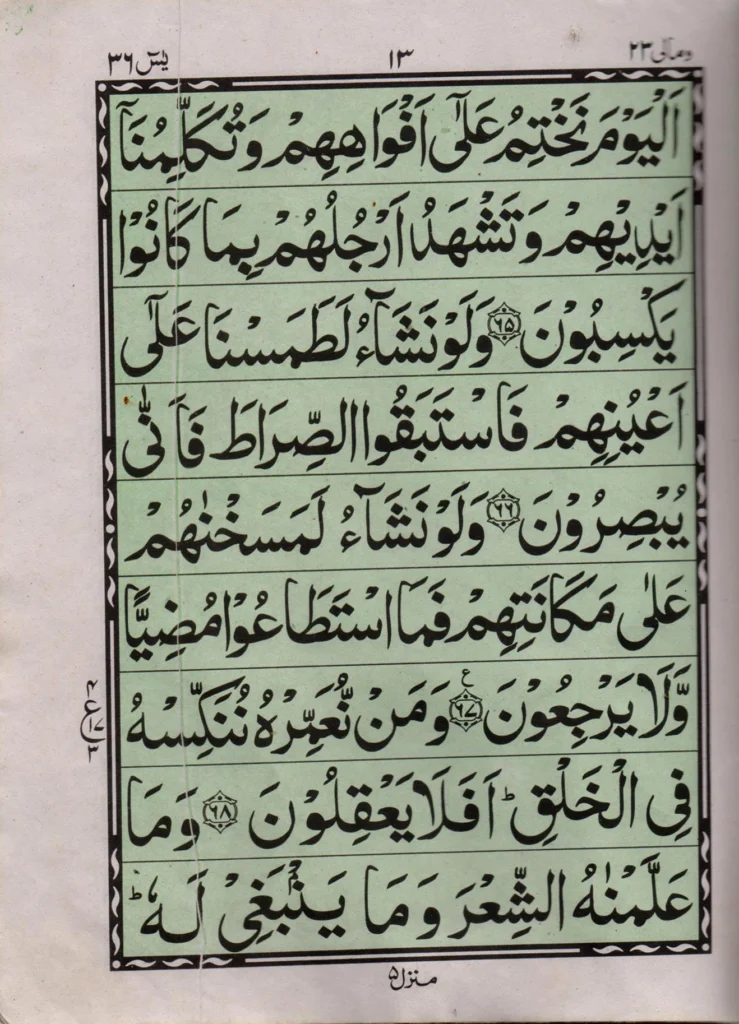 ومالی ٢٣
١٣
یٰسٓ ٣٦
اَلْیَوْمَ نَخْتِمُ عَلٰۤی اَفْوَاهِهِمْ وَتُكَلِّمُنَاۤ
اَیْدِیْهِمْ وَتَشْهَدُ اَرْجُلُهُمْ بِمَا كَانُوْا
یَكْسِبُوْنَ ۝٦٥ وَلَوْ نَشَآءُ لَطَمَسْنَا عَلٰۤی
اَعْیُنِهِمْ فَاسْتَبَقُوا الصِّرَاطَ فَاَنّٰی
یُبْصِرُوْنَ ۝٦٦ وَلَوْ نَشَآءُ لَمَسَخْنٰهُمْ
عَلٰی مَكَانَتِهِمْ فَمَا اسْتَطَاعُوْا مُضِیًّا
وَّلَا یَرْجِعُوْنَ ۝٦٧ ع وَمَنْ نُّعَمِّرْهُ نُنَكِّسْهُ
٤ ع ١٧ ٣
فِی الْخَلْقِ ؕ اَفَلَا یَعْقِلُوْنَ ۝٦٨ وَمَا
عَلَّمْنٰهُ الشِّعْرَ وَمَا یَنْۢبَغِیْ لَهٗ ؕ
منزل ٥